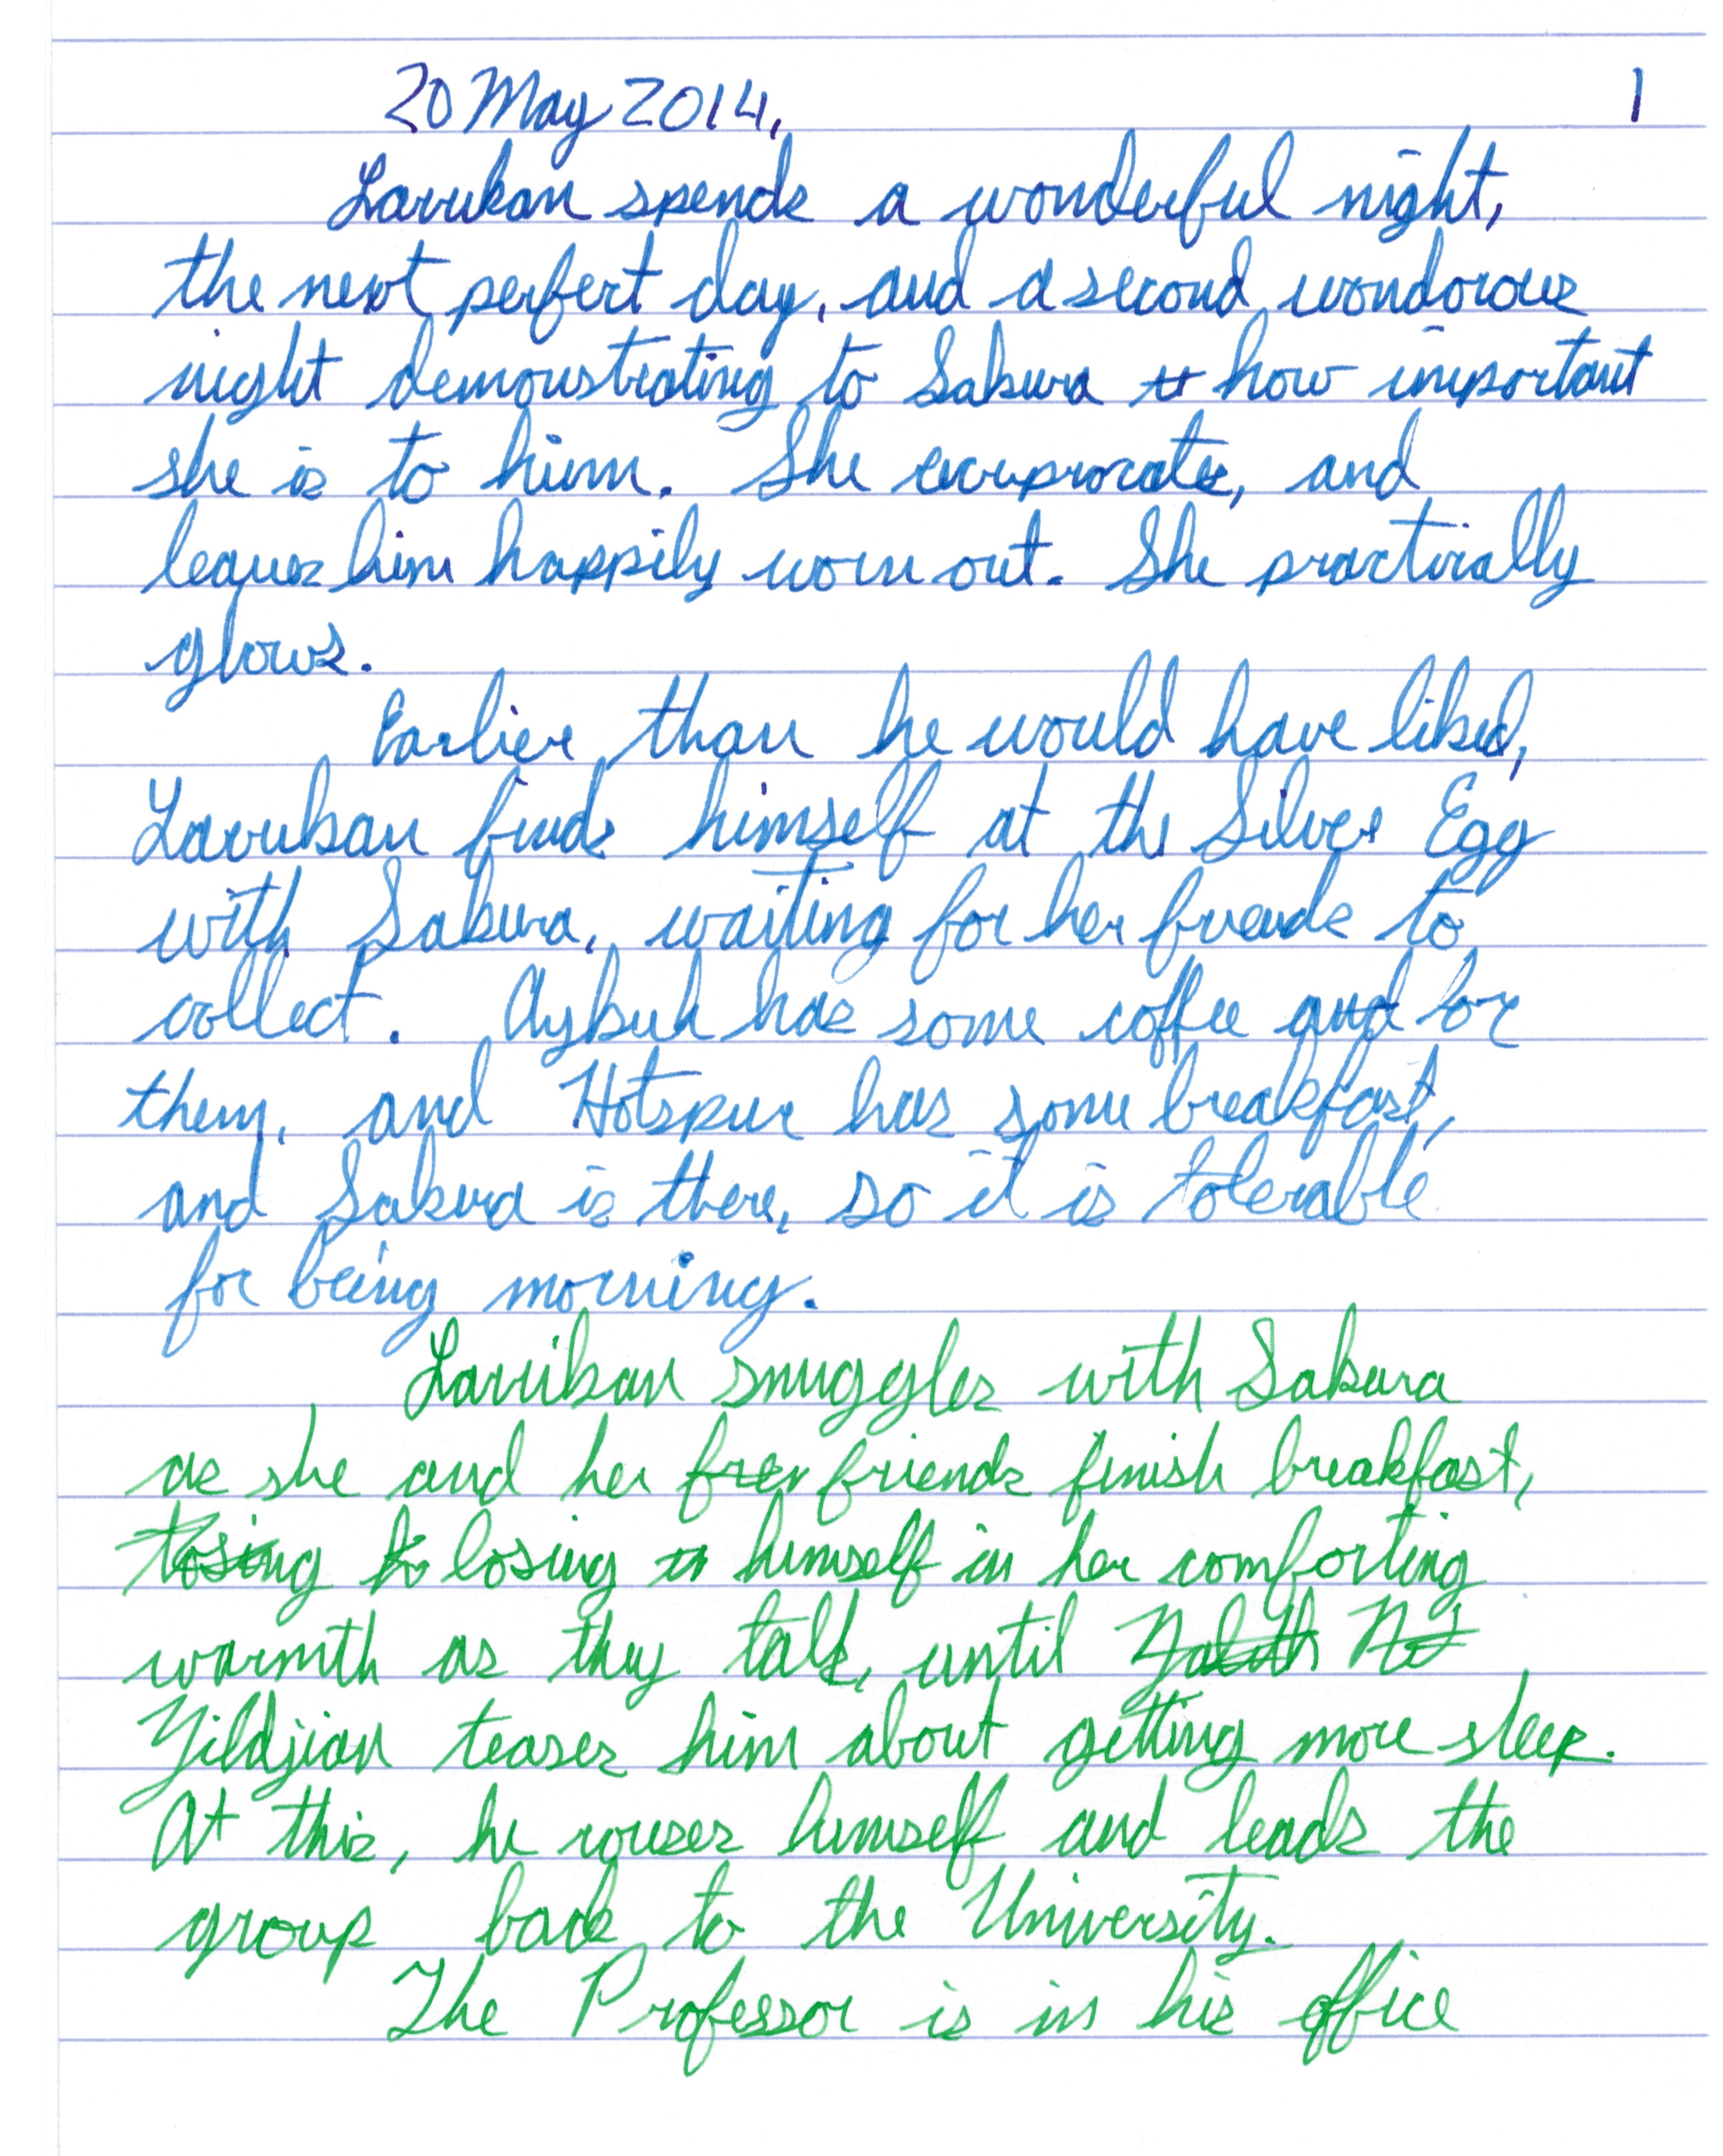 20 May 2014. 1
Larukan spends a wonderful night,
the next perfect day, and a second wondorous
night demonstrating to Sakura how important
she is to him. She reciprocates, and
leaves him happily worn out. She practically
glows.
Earlier than he would have liked,
Larukan finds himself at the Silver Egg
with Sakura, waiting for her friends to
collect. Aybuh has some coffee for
them, and Hotspur has some breakfast,
and Sakura is there, so it is tolerable
for being morning.
Larukan snuggles with Sakura
as she and her friends finish breakfast,
losing himself in her comforting
warmth as they talk, until
Yildjian teases him about getting more sleep.
At this, he rouses himself and leads the
group back to the University.
The Professor is in his office